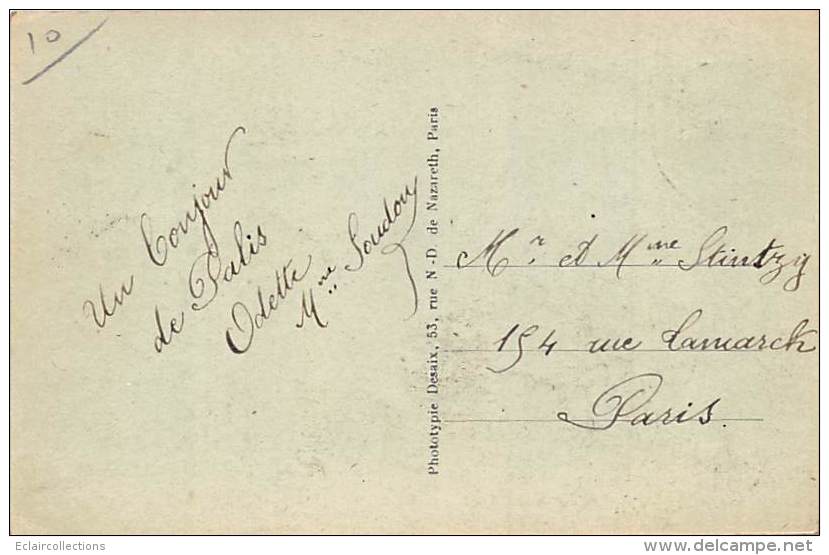 10
Un bonjour
de Palis
Odette
Mme Soudou
Phototypie Desaix, 53, rue N.-D. de Nazareth, Paris
Mr et Mme Stintzy
154 rue Lamarck
Paris.
Eclaircollections
www.delcampe.net